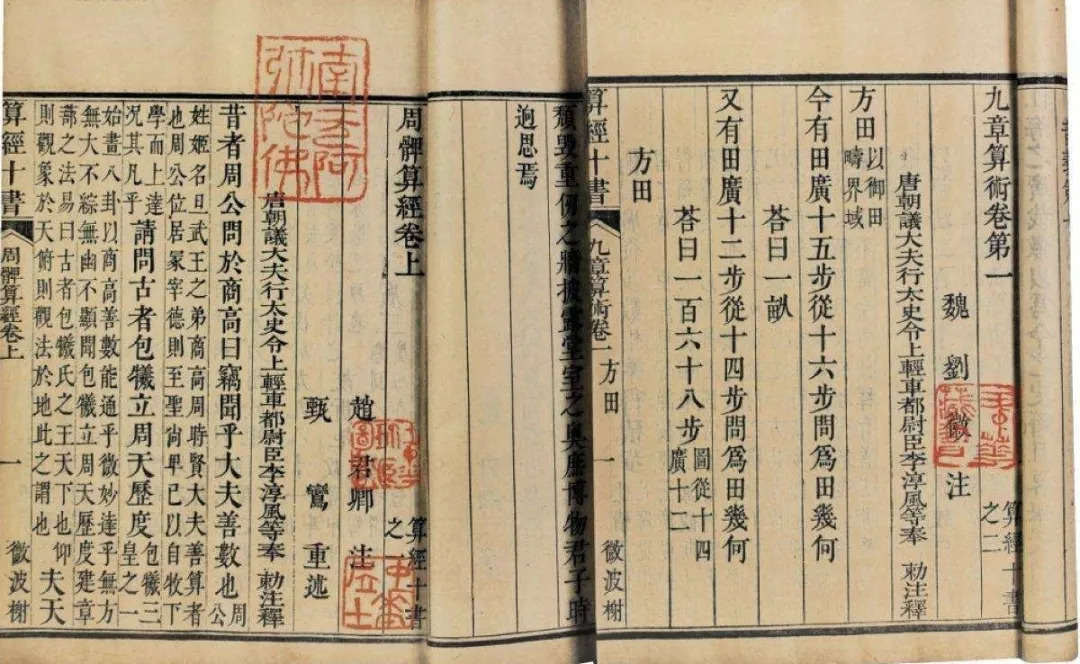 九章算術卷第一
算經十書之二
魏劉徽注
唐朝議大夫行太史令上輕車都尉臣李淳風等奉勅注釋
方田以御田疇界域
今有田廣十五步從十六步問爲田幾何
荅曰一畝
又有田廣十二步從十四步問爲田幾何
荅曰一百六十八步圖從十四廣十二
方田
算經十書
九章算術卷一方田
一
微波榭
頹毀重仞之牆披露堂室之奧庶博物君子時
迥思焉
周髀算經卷上
算經十書之一
趙君卿注
甄鸞重述
唐朝議大夫行太史令上輕車都尉臣李淳風等奉勅注釋
昔者周公問於商高曰竊聞乎大夫善數也周公
姓姬名旦武王之弟商高周時賢大夫善算者
也周公位居冢宰德則至聖尙卑己以自牧下
學而上達況其凡乎請問古者包犧立周天歷度包犧三皇之一
始畫八卦以商高善數能通乎微妙達乎無方
無大不綜無幽不顯聞包犧立周天歷度建章
蔀之法易曰古者包犧氏之王天下也仰
則觀象於天俯則觀法於地此之謂也夫天
算經十書
周髀算經卷上
一
微波榭
南無阿
彌陀佛